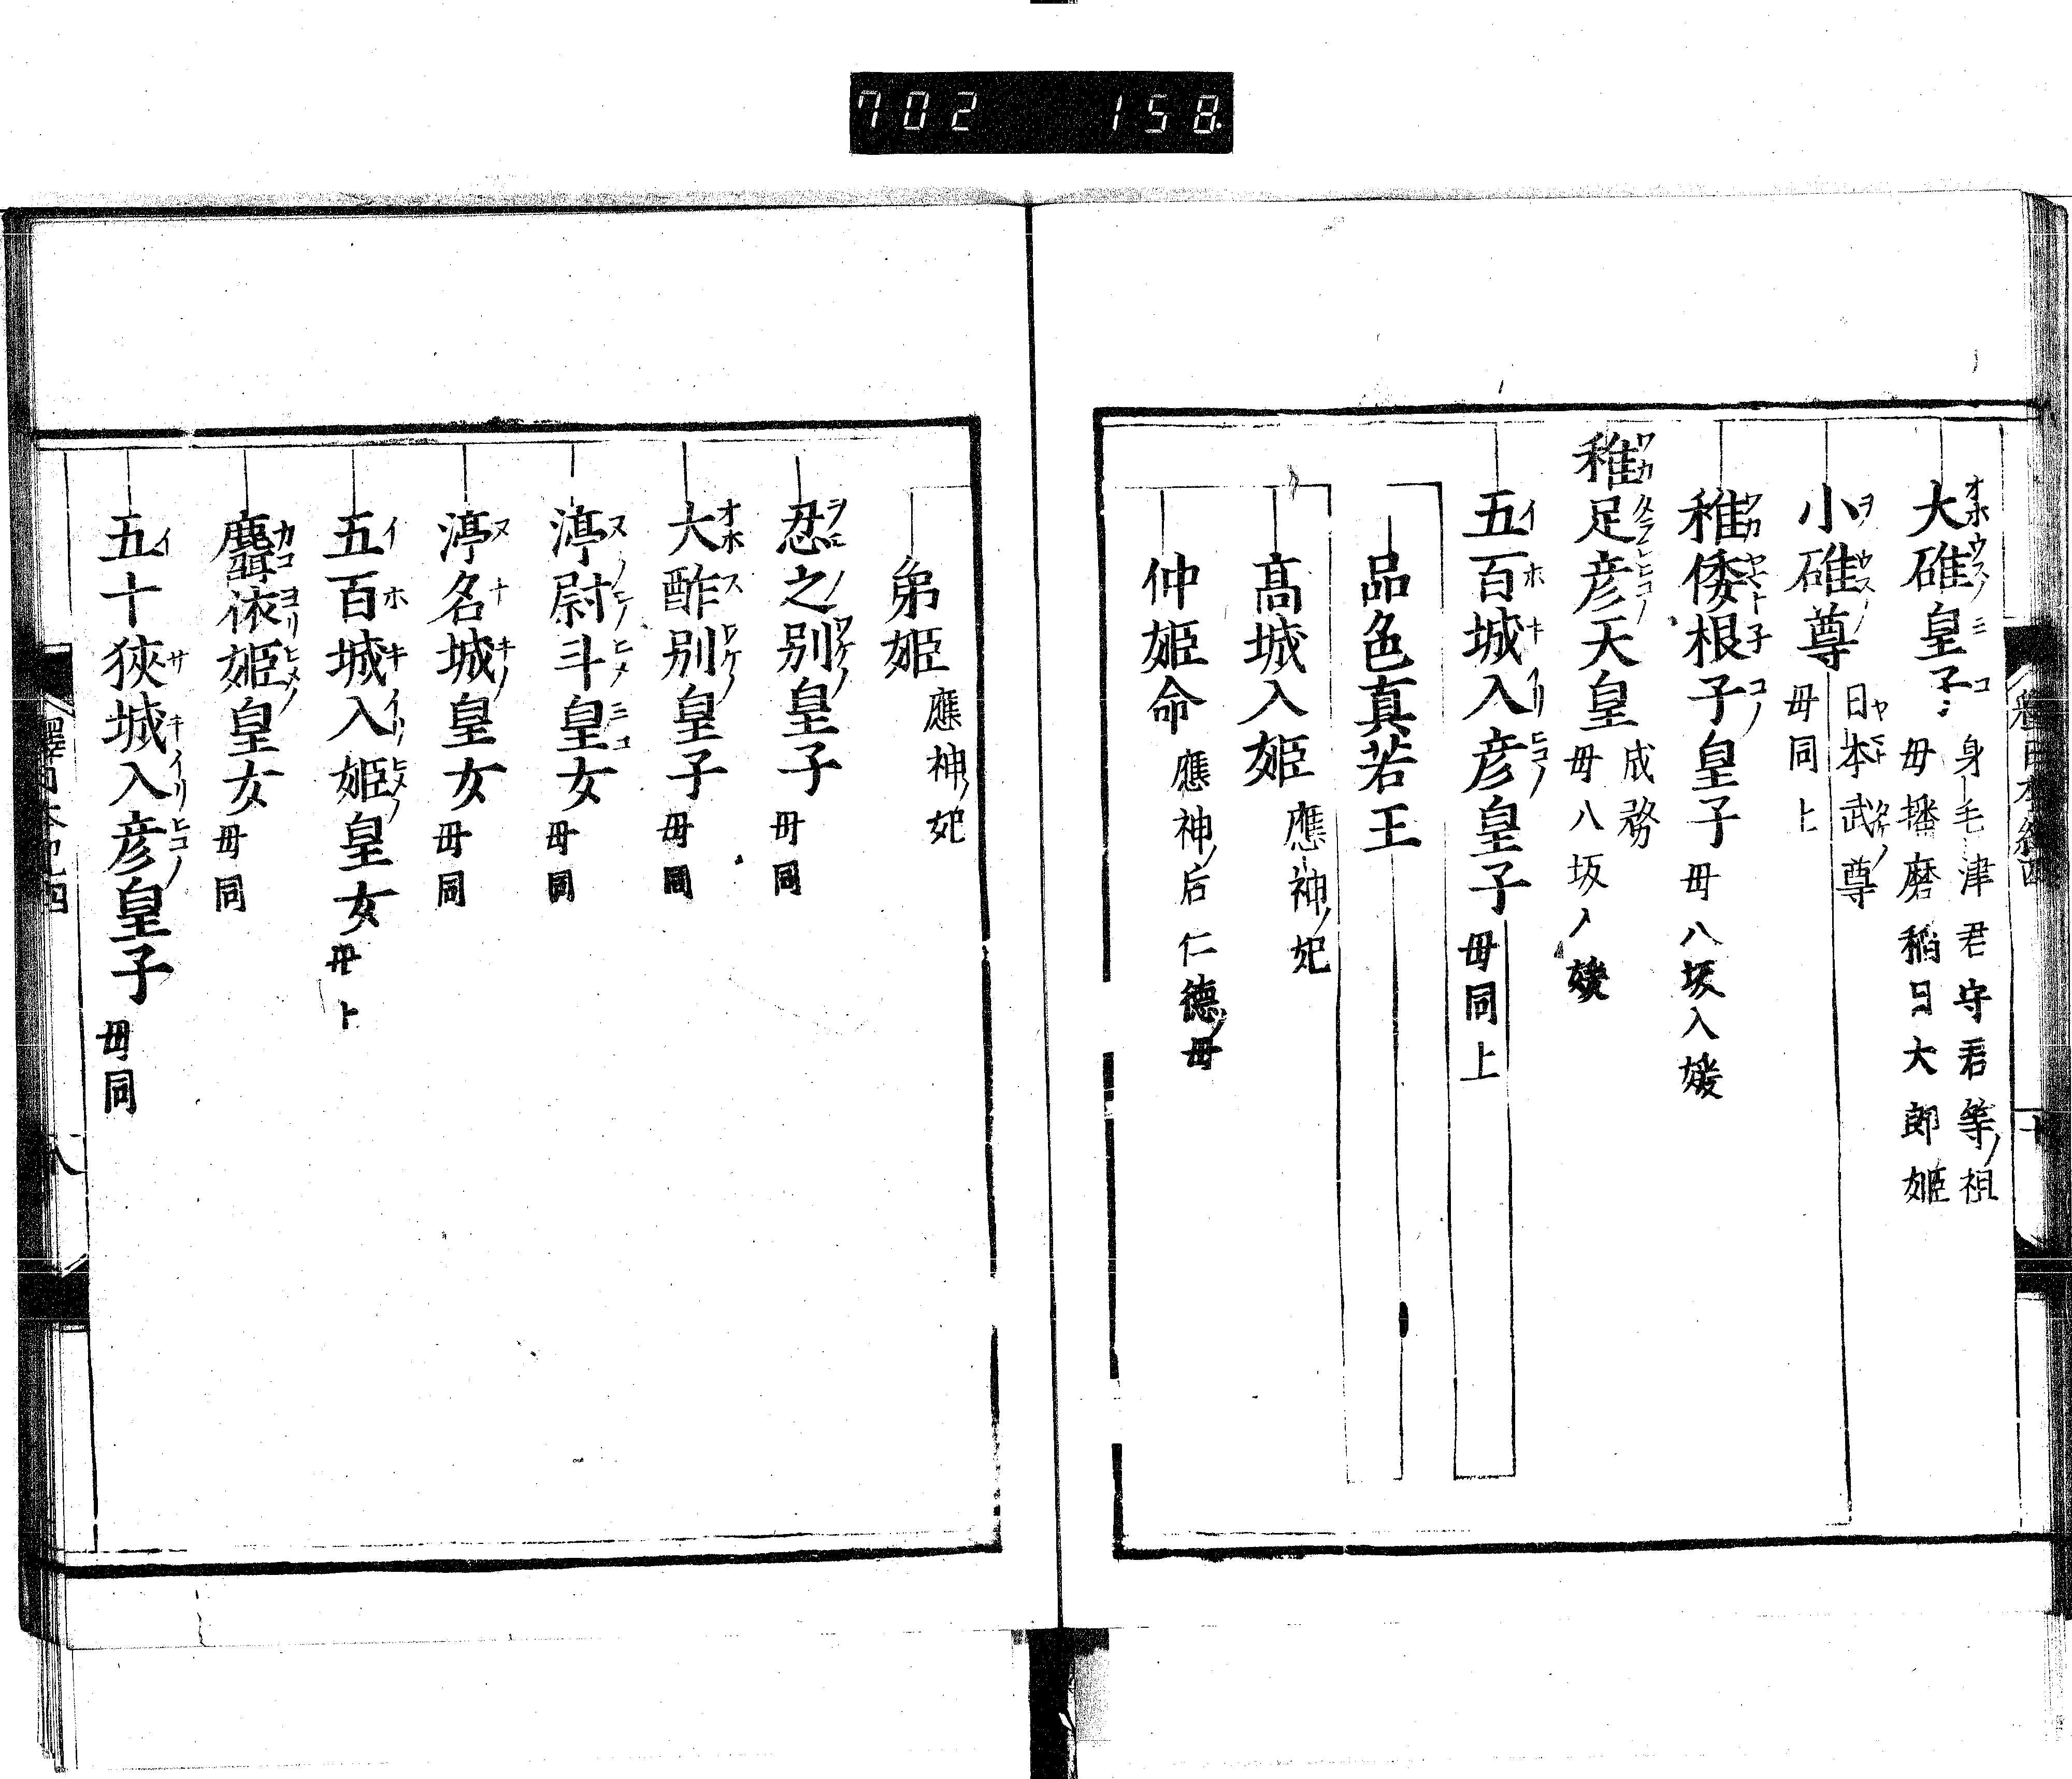 702 158
大碓皇子 身毛津君守君等ノ祖
母播磨稲日大郎姫
小碓尊 日本武尊
母同上
稚倭根子皇子 母八坂入媛
稚足彦天皇 成務
母八坂入媛
五百城入彦皇子 母同上
品色真若王
髙城入姫 應神ノ妃
仲姫命 應神ノ后 仁德ノ母
弟姫 應神ノ妃
忍之别皇子 母同
大酢别皇子 母同
渟尉斗皇女 母同
渟名城皇女 母同
五百城入姫皇女 母上
麛依姫皇女 母同
五十狹城入彦皇子 母同
釋日本紀四 八